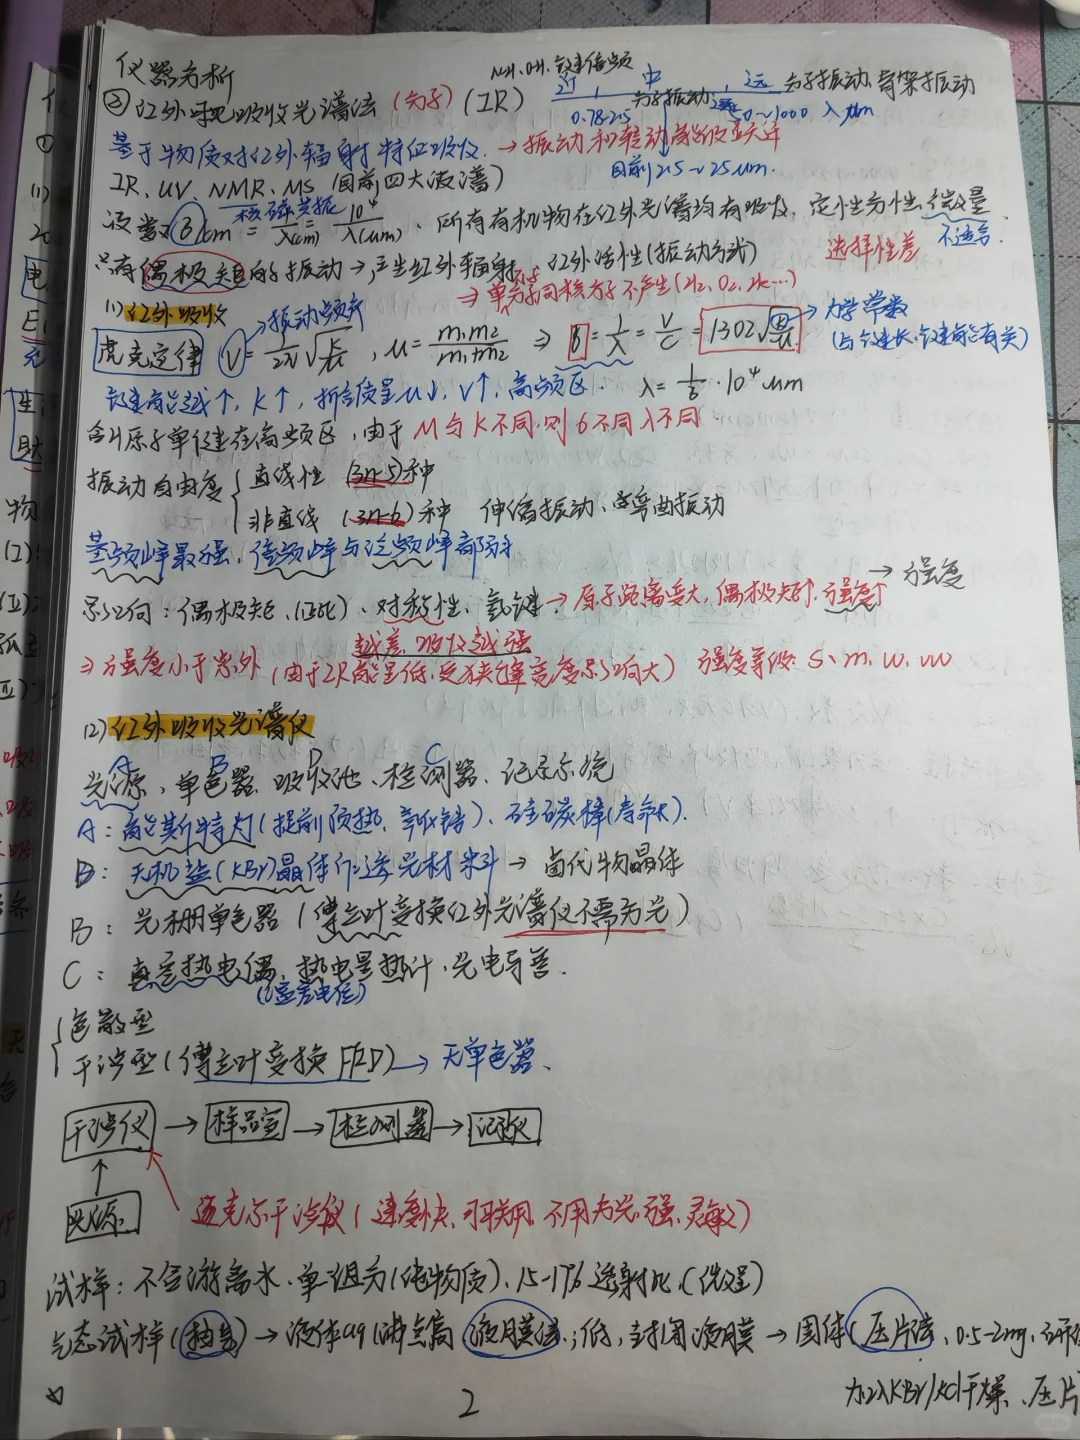 仪器分析
N-H、O-H、键倍频
近 中 远 分子振动、骨架振动
② 红外吸收光谱法 (分子) (IR)
0.78-2.5 分子振动 ~1000 λ μm
基于物质对红外辐射特征吸收. → 振动和转动能级跃迁
目前2.5~25μm.
IR、UV、NMR、MS (目前四大波谱)
核磁共振
波数 σ/cm = 1/λ(cm) = 10⁴/λ(μm). 所有有机物在红外光谱均有吸收, 定性分析, 微量
不适合.
选择性差
只有偶极矩的振动 → 产生红外辐射 红外活性(振动方式)
⇒ 单分子同核分子不产生(H₂、O₂、N₂…)
(1) 红外吸收
振动频率
力学常数
(与键长、键能有关)
虎克定律 V = 1/2π √k/μ , μ = m₁m₂/m₁+m₂ ⇒ σ = 1/λ = V/C = 1302√k/μ
键能越↑, K↑, 折合质量μ↓, V↑, 高频区. λ = 1/σ · 10⁴ μm
含H原子单键在高频区, 由于 M与K不同, 则σ不同λ不同
振动自由度 { 直线性 (3n-5)种
非直线 (3n-6)种 伸缩振动、弯曲振动
基频峰最强, 倍频峰与泛频峰都弱
→ 强度
影响: 偶极矩、对称性、氢键 → 原子距离变大, 偶极矩↑, 强度↑
越差, 吸收越强
⇒ 强度小于紫外 (由于IR能量低, 受狭缝宽度影响大) 强度等级: S、m、w、vw
(2) 红外吸收光谱仪
A B D C
光源、单色器、吸收池、检测器、记录系统
A: 能斯特灯(提前预热、氧化锆)、硅碳棒(寿命长).
D: 无机盐(KBr)晶体作透光材料 → 卤代物晶体
B: 光栅单色器 (傅立叶变换红外光谱仪不需分光)
C: 真空热电偶、热电量热计、光电导管.
(温差电位)
{ 色散型
干涉型(傅立叶变换 ) → 无单色器、
干涉仪 → 样品室 → 检测器 → 记录仪
↑
光源
迈克尔干涉仪 ( 速度快、可联用、不用分光、强、灵敏)
试样: 不含游离水、单一组分(纯物质)、15-1 % 透射比、
气态试样(抽气) → 液体 (沸点高 液膜法; 低, 封闭液膜 → 固体( 压片法、0.5-2mg、研
加入KBr/KCl干燥、压片
2